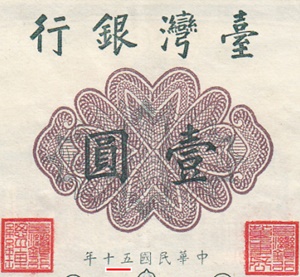 臺灣銀行
壹圓
中華民國五十年